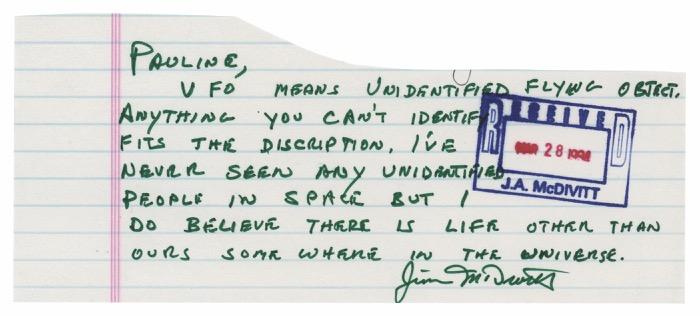 PAULINE,
UFO MEANS UNIDENTIFIED FLYING OBJECT.
ANYTHING YOU CAN'T IDENTIFY
FITS THE DISCRIPTION. I'VE
NEVER SEEN ANY UNIDENTIFIED
PEOPLE IN SPACE BUT I
DO BELIEVE THERE IS LIFE OTHER THAN
OURS SOME WHERE IN THE UNIVERSE.
Jim McDivitt
RECEIVED
MAR 28
J.A. McDIVITT